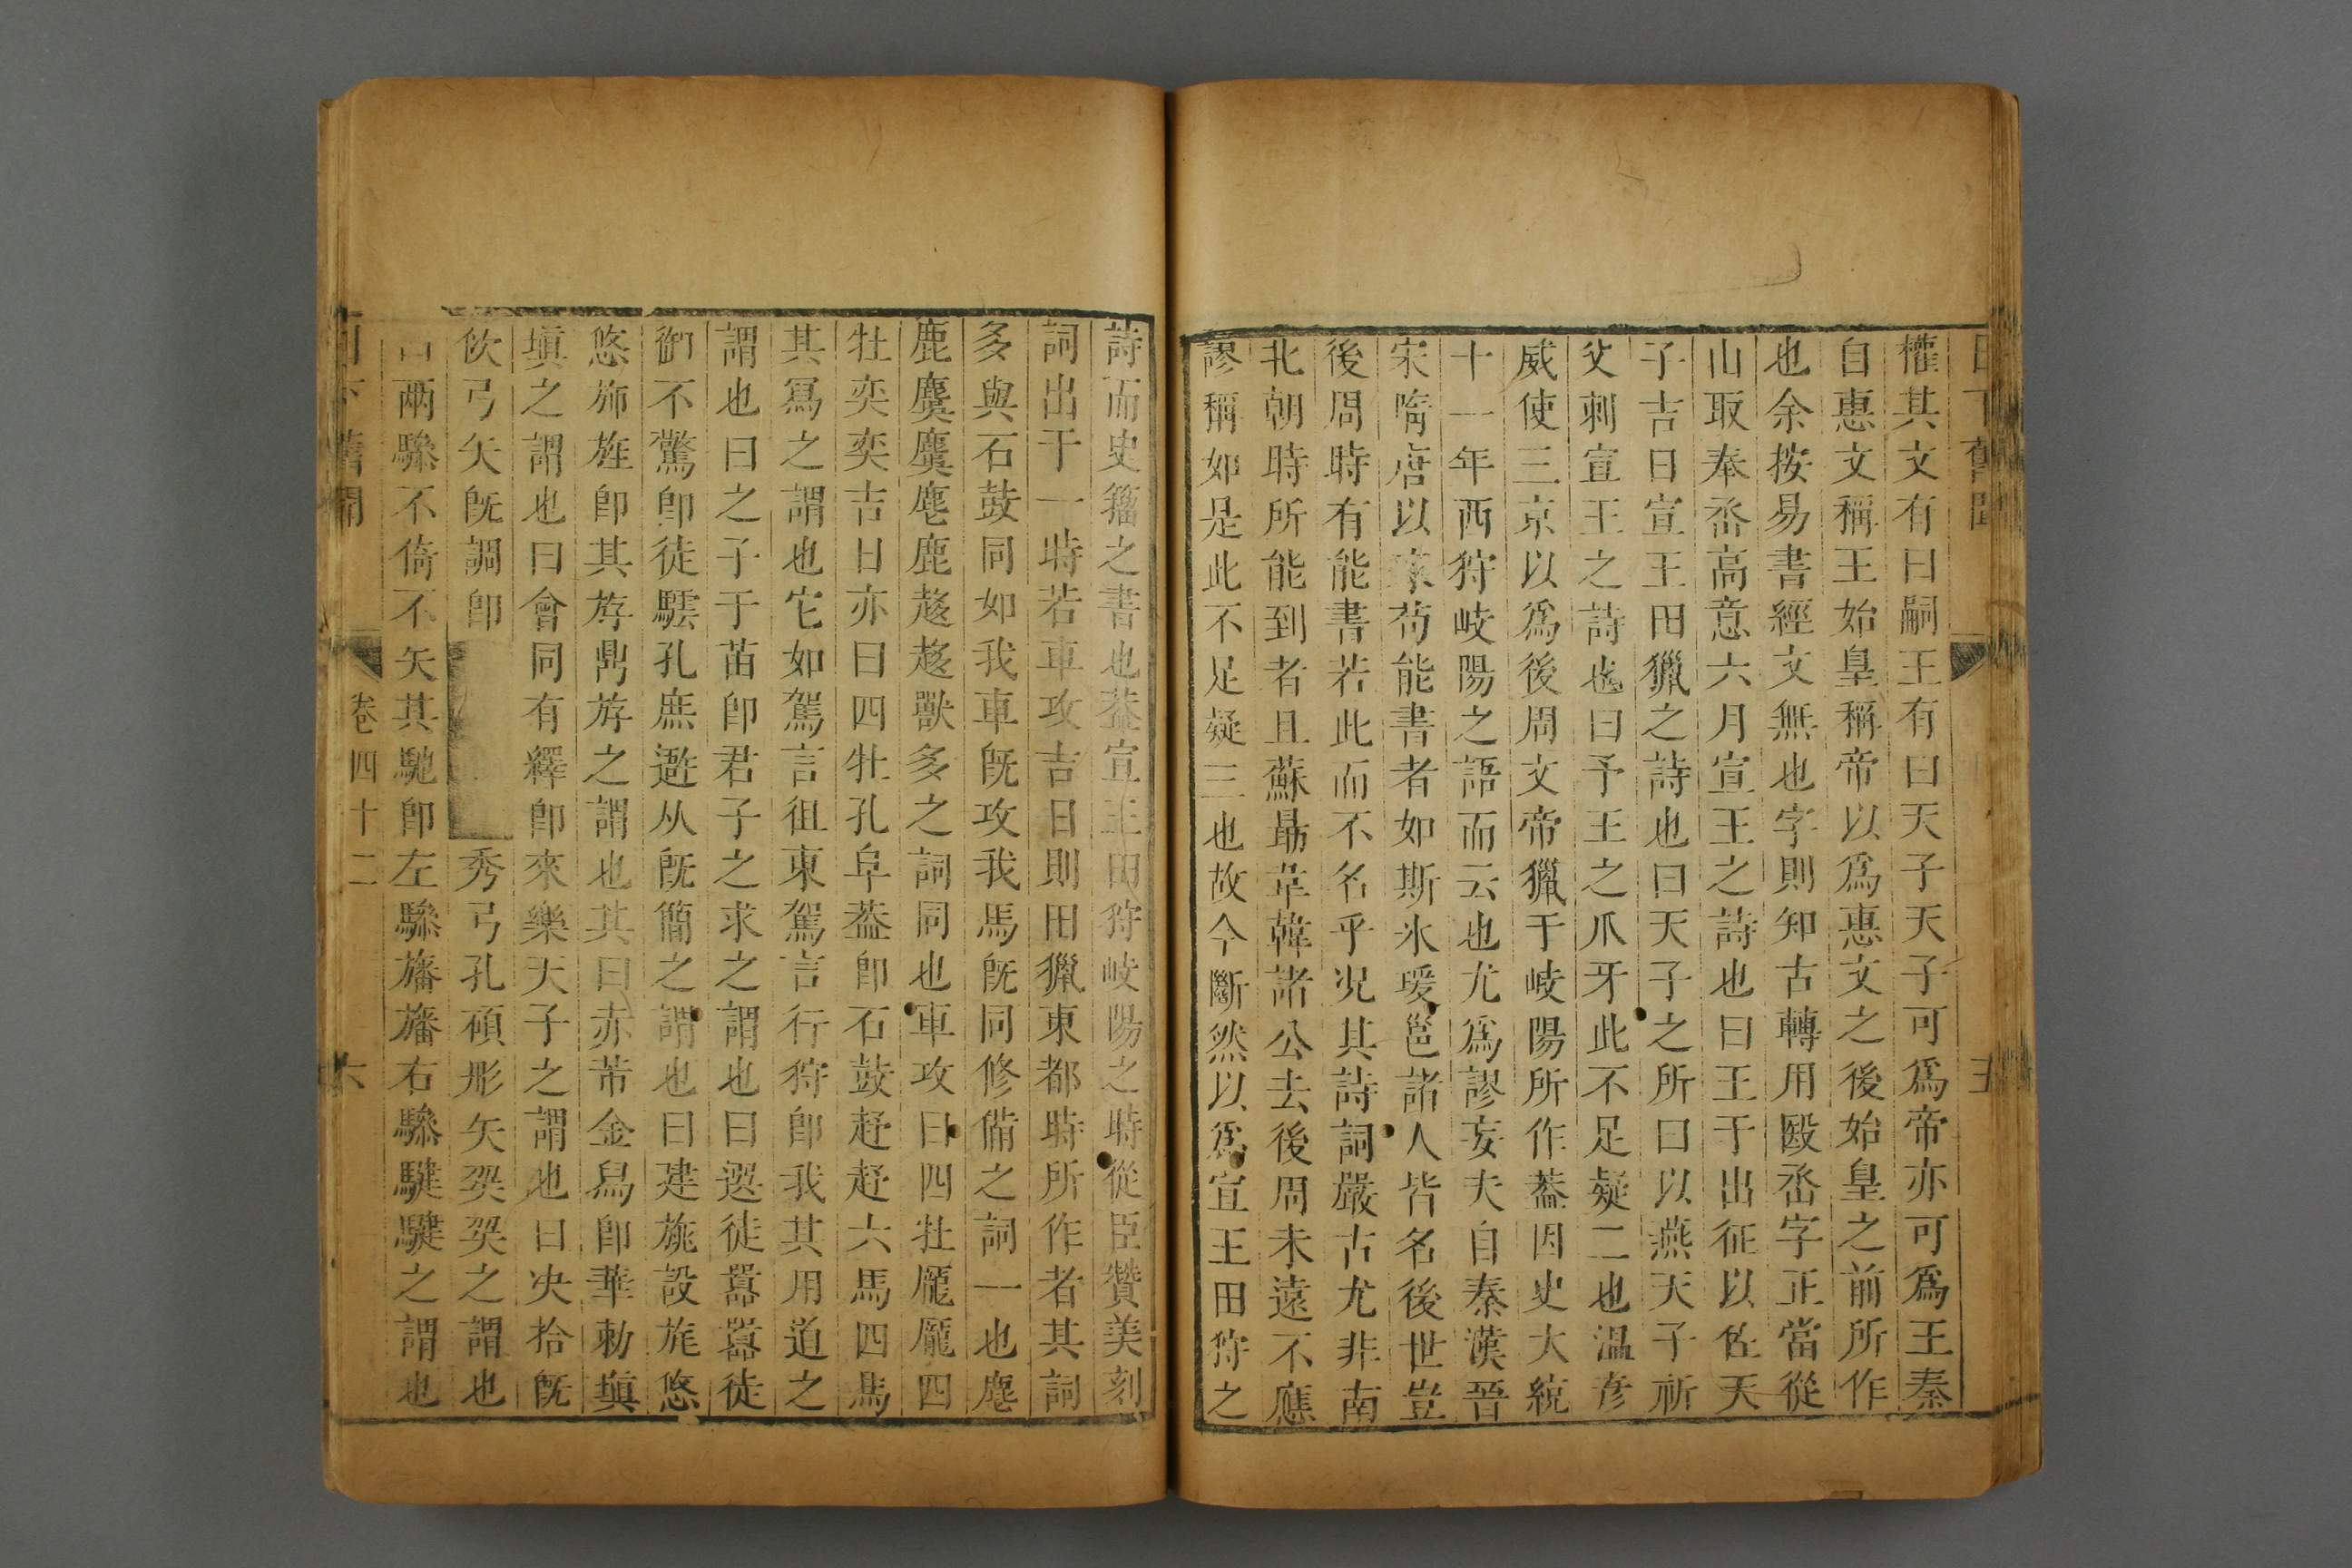 日下舊聞
五
權其文有曰嗣王有曰天子天子可爲帝亦可爲王秦
自惠文稱王始皇稱帝以爲惠文之後始皇之前所作
也余按易書經文無也字則知古轉用殹丞字正當從
山取奉丞高意六月宣王之詩也曰王于出征以佐天
子吉日宣王田獵之詩也曰天子之所曰以燕天子祈
父刺宣王之詩也曰予王之爪牙此不足疑二也溫彦
威使三京以爲後周文帝獵于岐陽所作葢因史大統
十一年西狩岐陽之語而云也尤爲謬妄夫自秦漢晉
宋隋唐以來苟能書者如斯氷瑗邕諸人皆名後世豈
後周時有能書若此而不名乎况其詩詞嚴古尤非南
北朝時所能到者且蘇勗韋韓諸公去後周未遠不應
謬稱如是此不足疑三也故今斷然以爲宣王田狩之
詩而史籀之書也葢宣王田狩岐陽之時從臣贊美刻
詞出于一時若車攻吉日則田獵東都時所作者其詞
多與石鼓同如我車旣攻我馬旣同修備之詞一也麀
鹿麌麌麀鹿趍趍獸多之詞同也車攻曰四牡龐龐四
牡奕奕吉日亦曰四牡孔阜葢卽石鼓趍趍六馬四馬
其寫之謂也它如駕言徂東駕言行狩卽我其用道之
謂也曰之子于苗卽君子之求之謂也曰選徒囂囂徒
御不驚卽徒驭孔庶遊从旣簡之謂也曰建旐設旄悠
悠斾旌卽其斿䍺斿之謂也其曰赤芾金舄卽華勅塡
塡之謂也曰會同有繹卽來樂天子之謂也曰决拾旣
佽弓矢旣調卽秀弓孔碩彤矢㚇㚇之謂也
曰兩驂不倚不矢其馳卽左驂旛旛右驂騝騝之謂也
日下舊聞
卷四十二
六